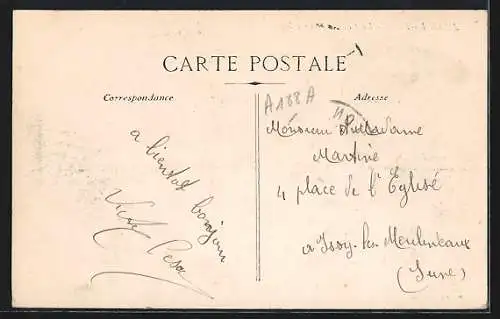 CARTE POSTALE
Correspondance
Adresse
A188A
a bientot bonjour
Monsieur et Madame
Martine
4 place de l'Eglisé
a Issy-les Moulineaux
(Seine)